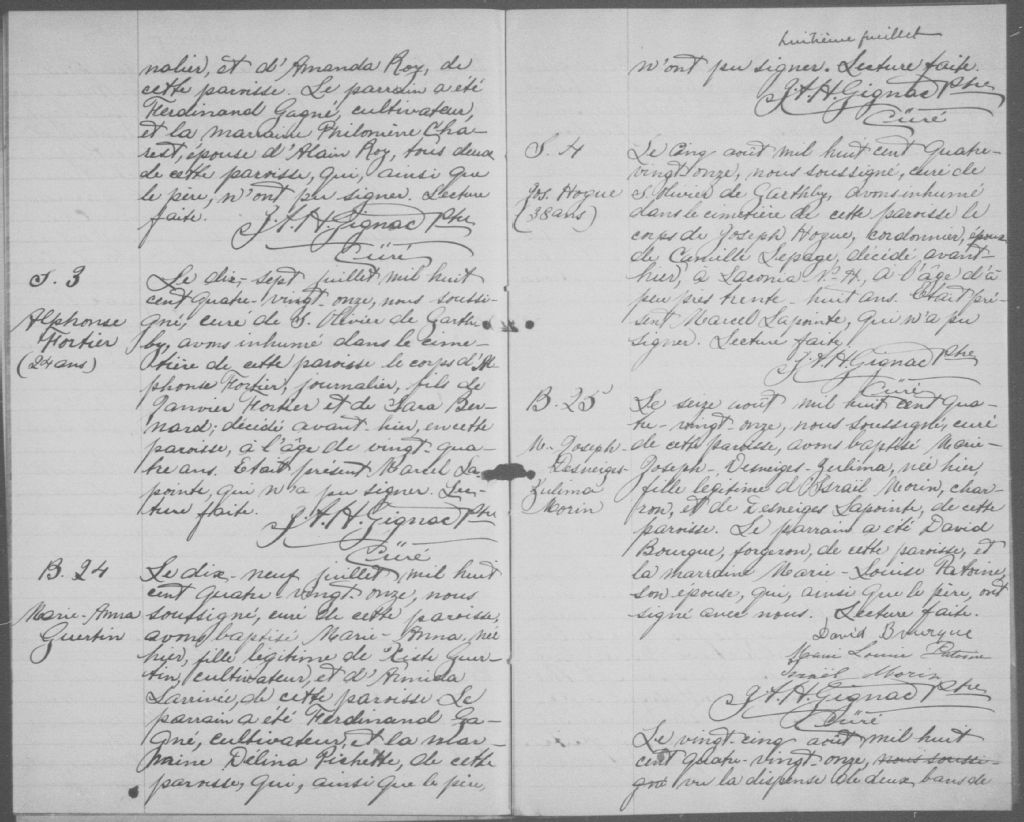 nalier, et d'Amanda Roy, de
cette paroisse. Le parrain a été
Ferdinand Gagné, cultivateur,
et la marraine Philomène Cha-
rest, épouse d'Alain Roy, tous deux
de cette paroisse, qui, ainsi que
le père, n'ont pu signer. Lecture
faite. J.A.H. Gignac Ptre
Curé
S. 3
Alphonse
Fortier
(24 ans)
Le dix-sept juillet mil huit
cent quatre-vingt onze, nous soussi-
gné, curé de S. Olivier de Garth-
by, avons inhumé dans le cime-
tière de cette paroisse le corps d'Al-
phonse Fortier, journalier, fils de
Janvier Fortier et de Sara Ber-
nard; décédé avant-hier, en cette
paroisse, à l'âge de vingt-qua-
tre ans. Etait présent Marcel La-
pointe, qui n'a pu signer. Lec-
ture faite. J.A.H. Gignac Ptre
Curé
B. 24
Marie-Anna
Guertin
Le dix-neuf juillet mil huit
cent quatre-vingt onze, nous
soussigné, curé de cette paroisse,
avons baptisé Marie-Anna, née
hier, fille légitime de Xiste Guer-
tin, cultivateur, et d'Armida
Larrivée, de cette paroisse. Le
parrain a été Ferdinand Ga-
gné, cultivateur, et la mar-
raine Délina Pichette, de cette
paroisse, qui, ainsi que le père,
huitième feuillet
n'ont pu signer. Lecture faite.
J.A.H. Gignac Ptre
Curé
S. 4
Jos. Hogue
(38 ans)
Le cinq août mil huit cent quatre-
vingt onze, nous soussigné, curé de
S. Olivier de Garthby, avons inhumé
dans le cimetière de cette paroisse le
corps de Joseph Hogue, cordonnier, époux
de Camille Lepage, décidé avant-
hier, à Laconia N. H., à l'âge d'à
peu près trente-huit ans. Etait pré-
sent Marcel Lapointe, qui n'a pu
signer. Lecture faite.
J.A.H. Gignac Ptre
Curé
B. 25
M.-Joseph-
Desneiges-
Zulima
Morin
Le seize août mil huit cent qua-
tre-vingt-onze, nous soussigné, curé
de cette paroisse, avons baptisé Marie-
Joseph-Desneiges-Zulima, née hier,
fille légitime d'Israël Morin, char-
ron, et de Desneiges Lapointe, de cette
paroisse. Le parrain a été David
Bourque, forgeron, de cette paroisse, et
la marraine Marie-Louise Patoine,
son épouse, qui, ainsi que le père, ont
signé avec nous. Lecture faite.
David Bourque
Marie Louise Patoine
Israël Morin
J.A.H. Gignac Ptre
Curé
Le vingt-cinq août mil huit
cent quatre-vingt onze, nous soussi-
gné vu la dispense de deux bans de